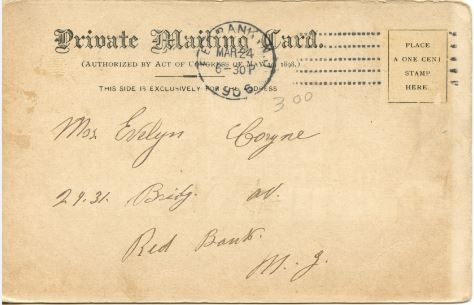 Private Mailing Card.
(AUTHORIZED BY ACT OF CONGRESS OF MAY 19, 1898.)
THIS SIDE IS EXCLUSIVELY FOR THE ADDRESS
RED BANK, N.J.
MAR 24
6-30 P
1906
PLACE
A ONE CENT
STAMP
HERE.
300
Mrs. Evelyn Coryne
29.31. Bridg. av.
Red Bank.
N. J.